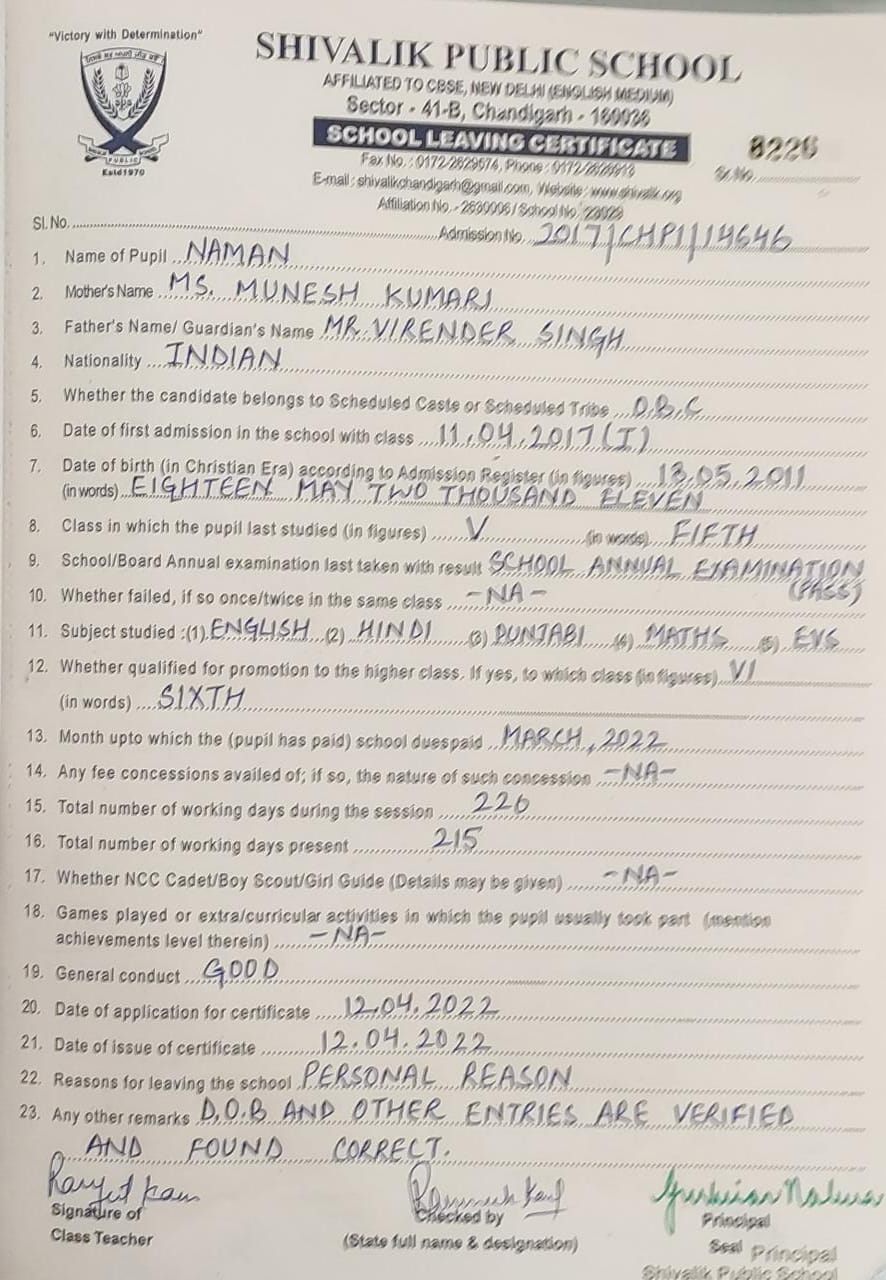 "Victory with Determination"
SHIVALIK PUBLIC SCHOOL
AFFILIATED TO CBSE, NEW DELHI (ENGLISH MEDIUM)
Sector - 41-B, Chandigarh - 160036
SCHOOL LEAVING CERTIFICATE
PUBLIC
Estd1970
8226
Fax No. : 0172-2629574, Phone :
Sr.No.
E-mail : shivalikchandigarh@gmail.com, Website : www.shivalik.org
Affiliation No. - 2630006 / School No. 23029
Sl. No. Admission No. 2017/CHP1/14646
1. Name of Pupil NAMAN
2. Mother's Name MS. MUNESH KUMARI
3. Father's Name/ Guardian's Name MR. VIRENDER SINGH
4. Nationality INDIAN
5. Whether the candidate belongs to Scheduled Caste or Scheduled Tribe O.B.C
6. Date of first admission in the school with class 11.04.2017 (I)
7. Date of birth (in Christian Era) according to Admission Register (in figures) 18.05.2011
(in words) EIGHTEEN MAY TWO THOUSAND ELEVEN
8. Class in which the pupil last studied (in figures) V (in words) FIFTH
9. School/Board Annual examination last taken with result SCHOOL ANNUAL EXAMINATION
(PASS)
10. Whether failed, if so once/twice in the same class -NA-
11. Subject studied :(1) ENGLISH (2) HINDI (3) PUNJABI (4) MATHS (5) EVS
12. Whether qualified for promotion to the higher class. If yes, to which class (in figures) VI
(in words) SIXTH
13. Month upto which the (pupil has paid) school duespaid MARCH, 2022
14. Any fee concessions availed of; if so, the nature of such concession -NA-
15. Total number of working days during the session 220
16. Total number of working days present 215
17. Whether NCC Cadet/Boy Scout/Girl Guide (Details may be given) -NA-
18. Games played or extra/curricular activities in which the pupil usually took part (mention
achievements level therein) -NA-
19. General conduct GOOD
20. Date of application for certificate 12.04.2022
21. Date of issue of certificate 12.04.2022
22. Reasons for leaving the school PERSONAL REASON
23. Any other remarks D.O.B AND OTHER ENTRIES ARE VERIFIED
AND FOUND CORRECT.
Signature of Checked by Principal
Class Teacher (State full name & designation) Seal Principal
Shivalik Public School